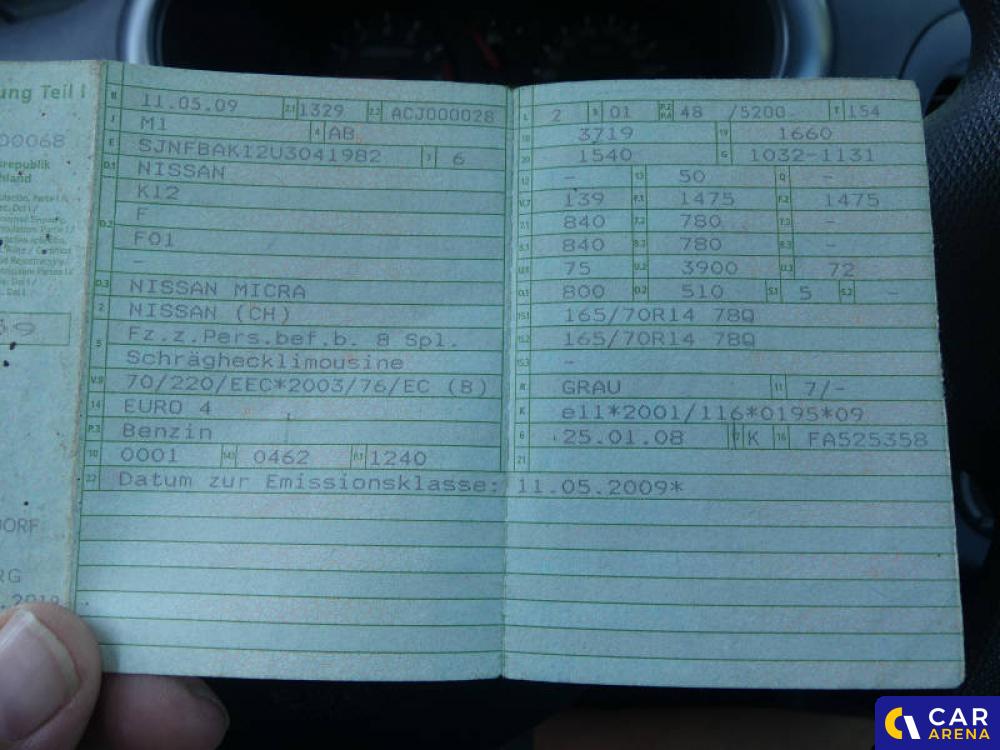 ung Teil I
00068
srepublik
hland
DORF
RG
B 11.05.09 2.1 1329 2.2 ACJ000028
J M1 4 AB
E SJNFBAK12U3041982 3 6
D.1 NISSAN
K12
D.2 F
F01
–
D.3 NISSAN MICRA
2 NISSAN (CH)
5 Fz.z.Pers.bef.b. 8 Spl.
Schräghecklimousine
V.9 70/220/EEC*2003/76/EC (B)
14 EURO 4
P.3 Benzin
10 0001 14.1 0462 P.1 1240
22 Datum zur Emissionsklasse: 11.05.2009*
L 2 9 01 P.2 P.4 48 /5200 T 154
18 3719 19 1660
20 1540 G 1032-1131
12 – 13 50 Q –
V.7 139 F.1 1475 F.2 1475
7.1 840 7.2 780 7.3 –
8.1 840 8.2 780 8.3 –
U.1 75 U.2 3900 U.3 72
O.1 800 O.2 510 S.1 5 S.2 –
15.1 165/70R14 78Q
15.2 165/70R14 78Q
15.3 –
R GRAU 11 7/-
K e11*2001/116*0195*09
6 25.01.08 17 K 16 FA525358
21
CAR
ARENA